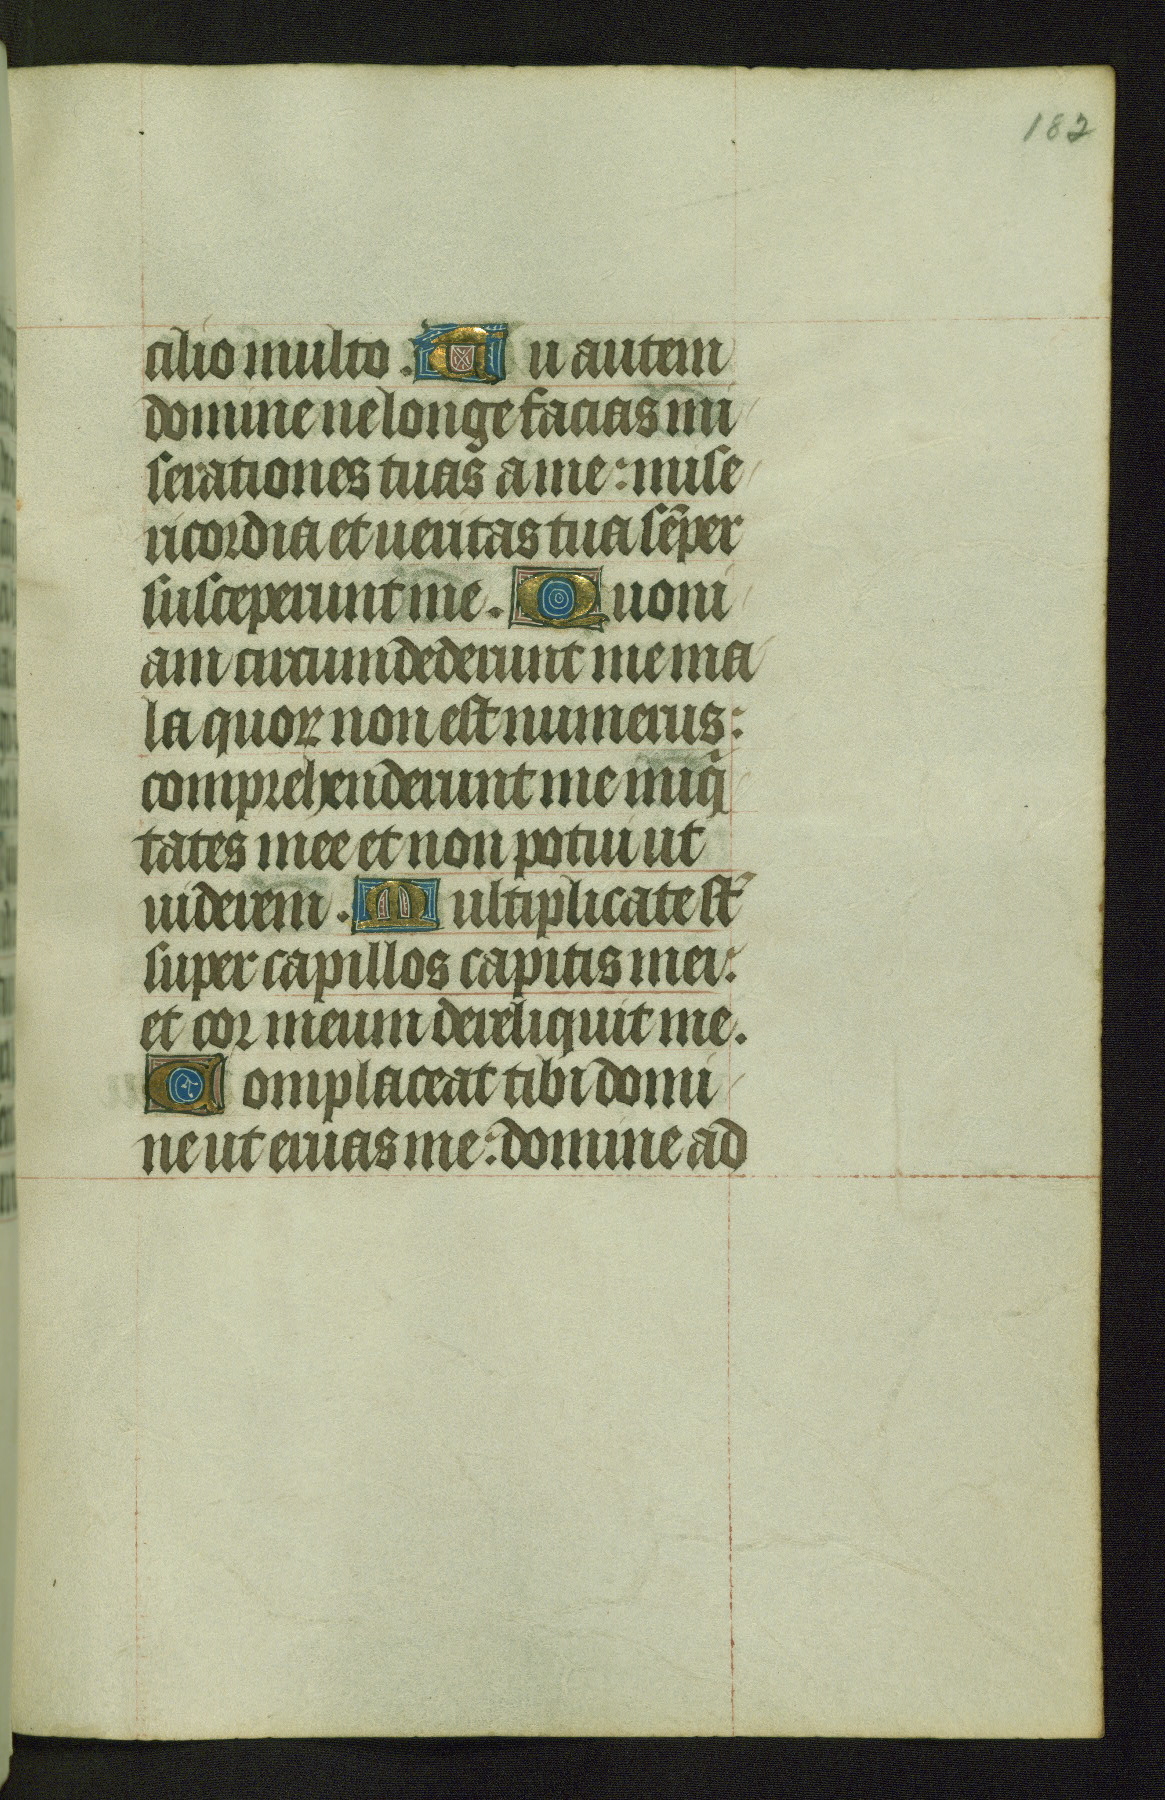 182
cilio multo. Tu autem
domine ne longe facias mi
serationes tuas a me: mise
ricordia et ueritas tua sēper
susceperunt me. Quoni
am circumdederunt me ma
la quoꝝ non est numerus:
comprehenderunt me iniqͥ
tates mee et non potui ut
uiderem. Multiplicate st̄
super capillos capitis mei:
et cor meum dereliquit me.
Complaceat tibi domi
ne ut eruas me: domine ad